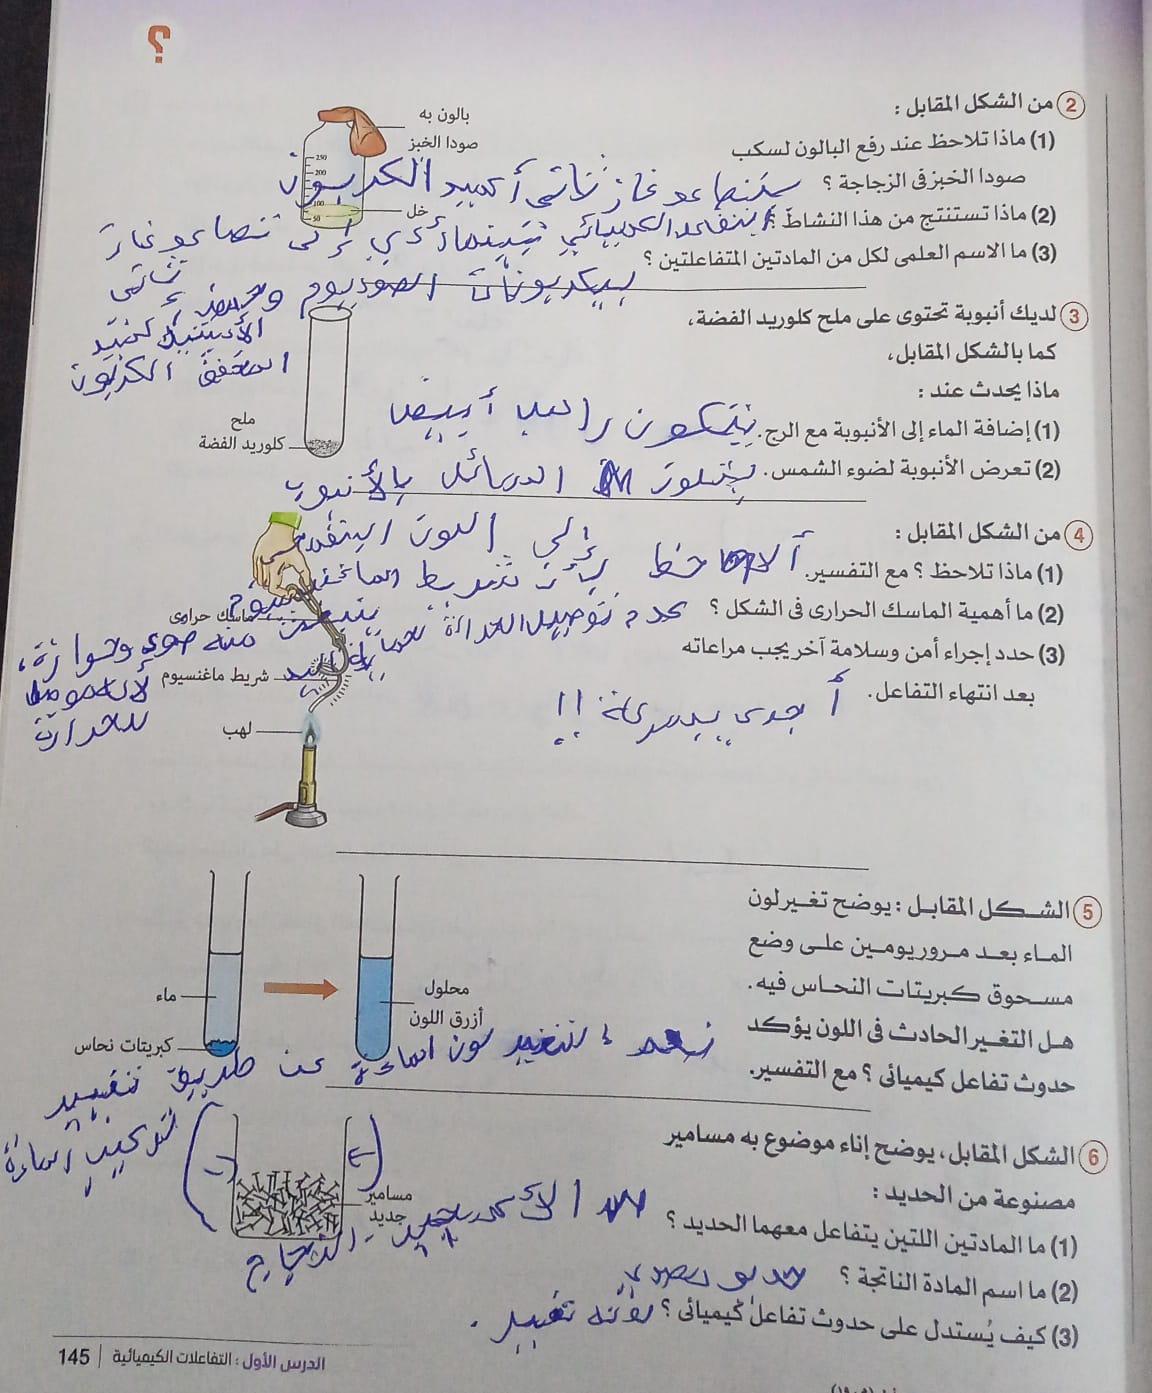 ؟
2 من الشكل المقابل :
بالون به
صودا الخبز
(1) ماذا تلاحظ عند رفع البالون لسكب
صودا الخبز فى الزجاجة ؟ ستتصاعد غاز ثنائي أكسيد الكربون
250
200
100
50
خل
(2) ماذا تستنتج من هذا النشاط ؟ التفاعل الكيميائي بينهما أدى إلى تصاعد غاز
ثنائي
أكسيد
الكربون
(3) ما الاسم العلمى لكل من المادتين المتفاعلتين ؟
بيكربونات الصوديوم وحمض
الأسيتيك
المخفف
3 لديك أنبوبة تحتوى على ملح كلوريد الفضة،
كما بالشكل المقابل،
ماذا يحدث عند :
(1) إضافة الماء إلى الأنبوبة مع الرج. يتكون راسب أبيض
ملح
كلوريد الفضة
(2) تعرض الأنبوبة لضوء الشمس. يتلون السائل بالأنبوب
إلى اللون البنفسجي
4 من الشكل المقابل :
(1) ماذا تلاحظ ؟ مع التفسير. ألاحظ أن شريط الماغنسيوم
ينبعث منه ضوء وحرارة،
للحرارة
(2) ما أهمية الماسك الحرارى فى الشكل ؟ عدم توصيل الحرارة
ماسك حرارى
(3) حدد إجراء أمن وسلامة آخر يجب مراعاته
بعد انتهاء التفاعل. أجري بسرعة !!
شريط ماغنسيوم
لهب
5 الشكل المقابل : يوضح تغير لون
الماء بعد مرور يومين على وضع
مسحوق كبريتات النحاس فيه.
هل التغير الحادث فى اللون يؤكد
حدوث تفاعل كيميائى ؟ مع التفسير.
ماء
كبريتات نحاس
محلول
أزرق اللون
نعم، لتغير لون المادة عن طريق تغيير
تركيب المادة
6 الشكل المقابل، يوضح إناء موضوع به مسامير
مصنوعة من الحديد :
مسامير
حديد
(1) ما المادتين اللتين يتفاعل معهما الحديد ؟ الأكسجين - الزجاج
(2) ما اسم المادة الناتجة ؟
(3) كيف يُستدل على حدوث تفاعل كيميائى ؟ لأنه تغيير.
الدرس الأول : التفاعلات الكيميائية | 145